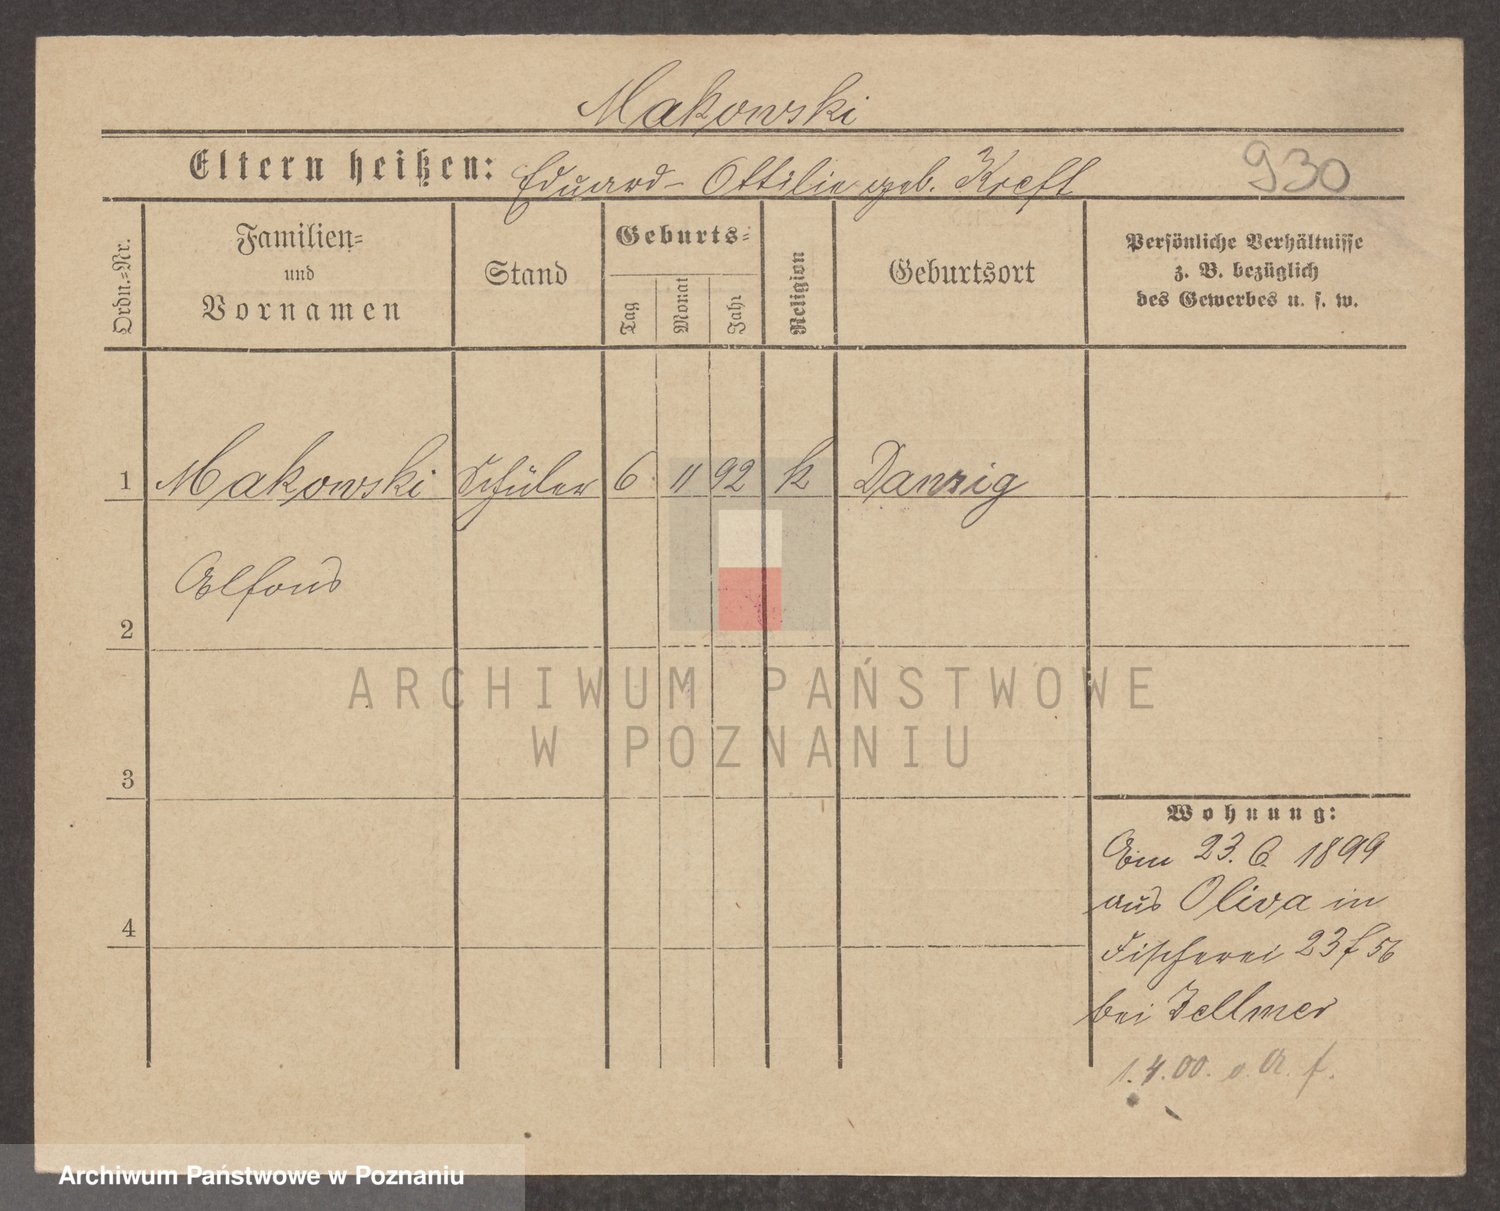 Makowski
Eltern heißen: Eduard - Ottilie geb. Kreft 930
Ordn.=Nr.
Familien=
und
Vornamen
Stand
Geburts=
Tag
Monat
Jahr
Religion
Geburtsort
Persönliche Verhältnisse
z. B. bezüglich
des Gewerbes u. s. w.
1 Makowski Schüler 6 11 92 k Danzig
Alfons
2
ARCHIWUM PAŃSTWOWE
W POZNANIU
3
Wohnung:
Am 23. 6. 1899
aus Oliva in
4
Fischerei 23 f 56
bei Zellmer
1.4.00. o. A. f.
Archiwum Państwowe w Poznaniu